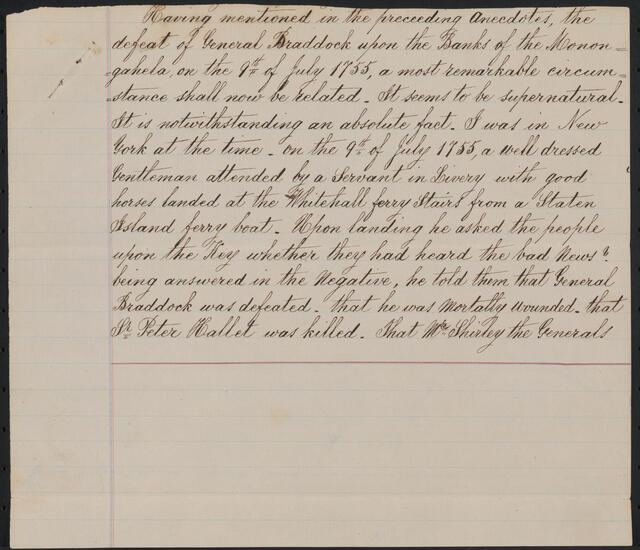 Having mentioned in the preceeding Anecdotes, the
defeat of General Braddock upon the Banks of the Monon=
=gahela, on the 9th of July 1755, a most remarkable circum=
=stance shall now be related. It seems to be supernatural.
It is notwithstanding an absolute fact. I was in New
York at the time. on the 9th of July 1755, a well dressed
Gentleman attended by a Servant in Livery with good
horses landed at the Whitehall ferry Stairs from a Staten
Island ferry boat. Upon landing he asked the people
upon the Key whether they had heard the bad News?
being answered in the Negative, he told them that General
Braddock was defeated. that he was Mortally wounded. that
Sr. Peter Hallet was killed. That Mr. Shirley the Generals